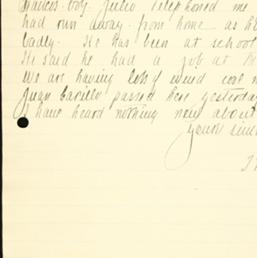 boy. Julio telephoned me
had run away from home as he
badly. He has been at school
He said he had a job at
We are having lots of wind
Juan passed here yesterday
I have heard nothing new about
yours since